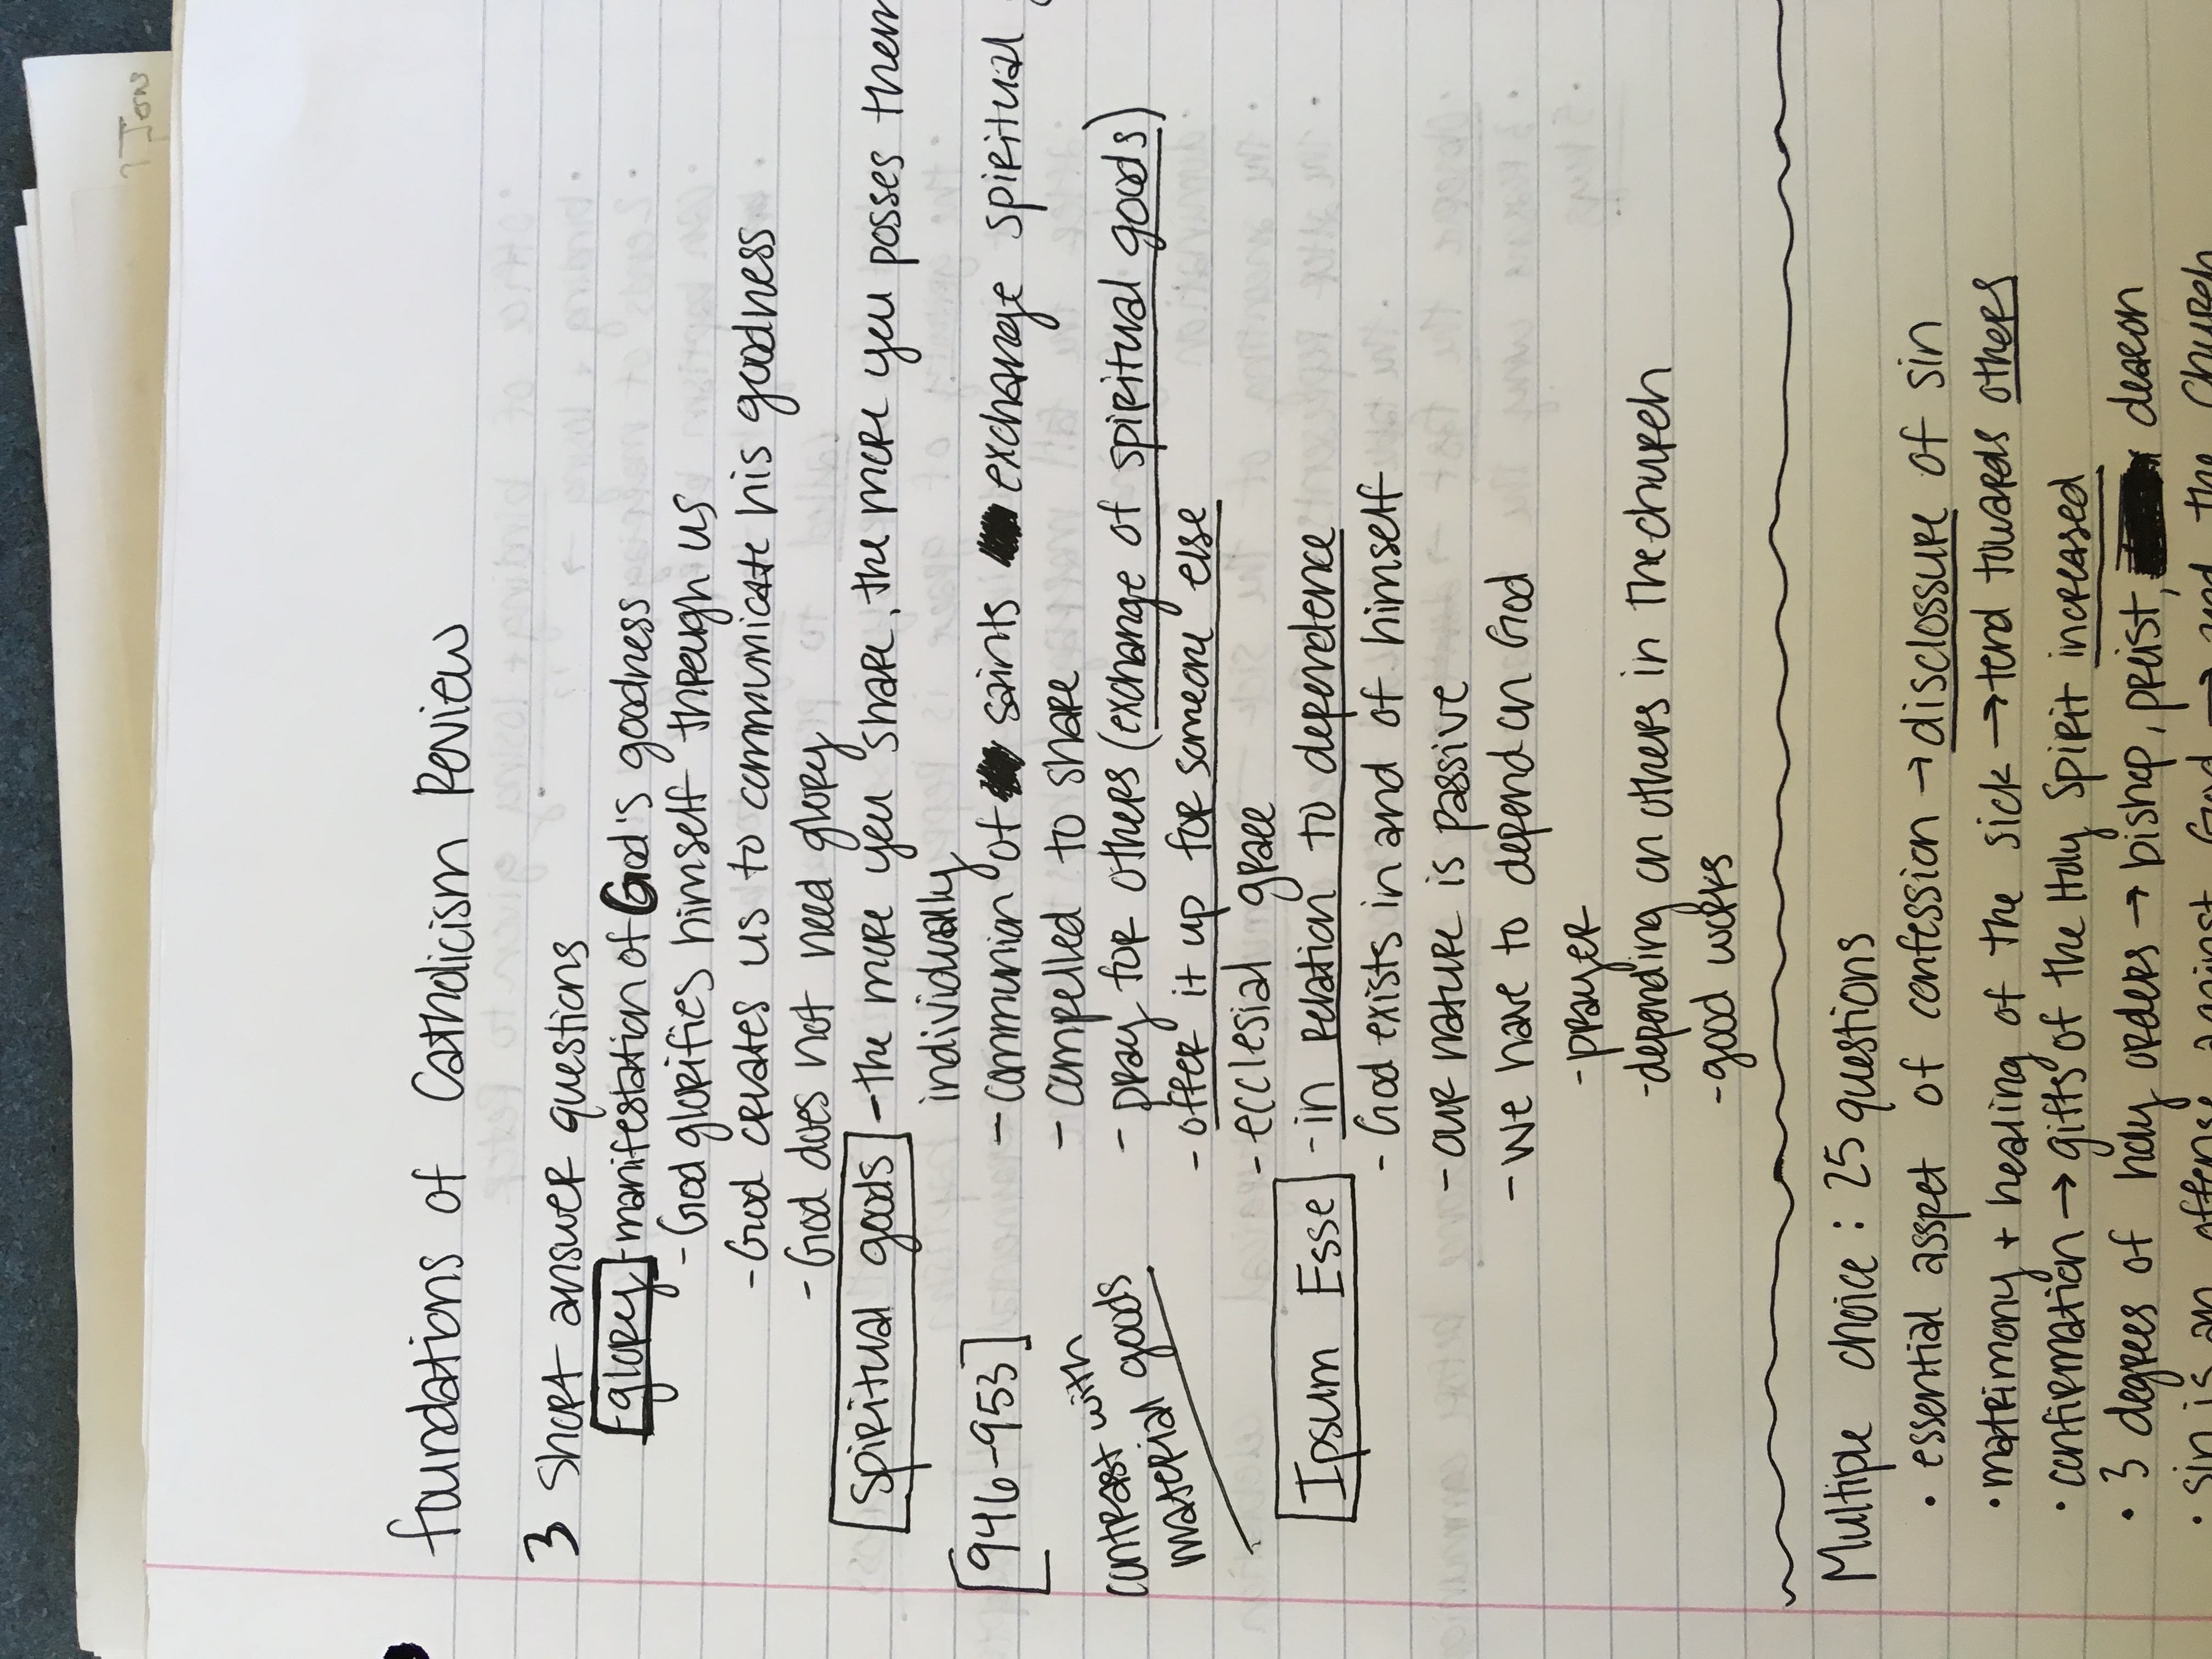 foundations of Catholicism Review
3 short answer questions
glory - manifestation of God's goodness
- God glorifies himself through us
- God creates us to communicate his goodness
- God does not need glory
Spiritual goods - the more you share, the more you posses them
individually
[946-953] - communion of saints exchange spiritual
- compelled to share
contrast with material goods - pray for others (exchange of spiritual goods)
- offer it up for someone else
- ecclesial grace
Ipsum Esse - in relation to dependence
- God exists in and of himself
- our nature is passive
- we have to depend on God
- prayer
- depending on others in the church
- good works
Multiple choice: 25 questions
• essential asspet of confession → disclossure of sin
• matrimony + healing of the sick → tend towards others
• confirmation → gifts of the Holy Spirit increased
• 3 degrees of holy orders → bishop, preist, deacon
• sin is an offense against God → and the Church